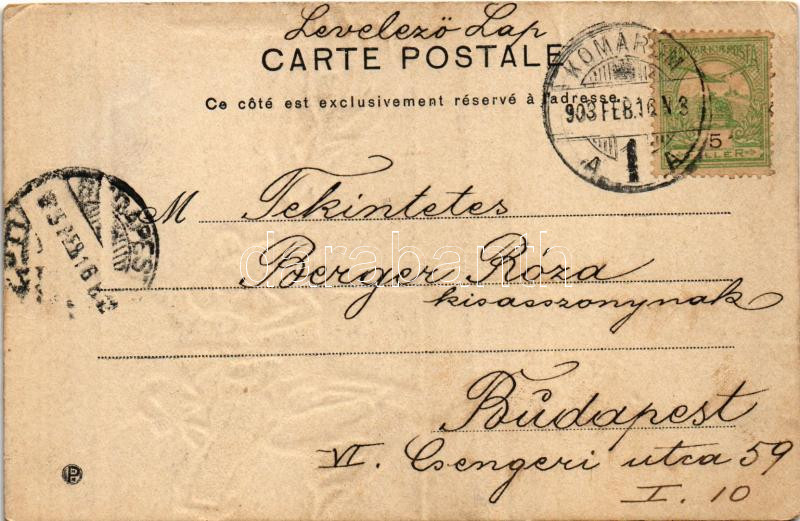 Levelező Lap
CARTE POSTALE
Ce côté est exclusivement réservé à l'adresse.
KOMÁROM
903 FEB.16 N 3
1
MAGYAR KIR. POSTA
5
FILLER
BUDAPEST
M Tekintetes
darabanth
Berger Róza
kisasszonynak
Budapest
VI. Csengeri utca 59
I. 10